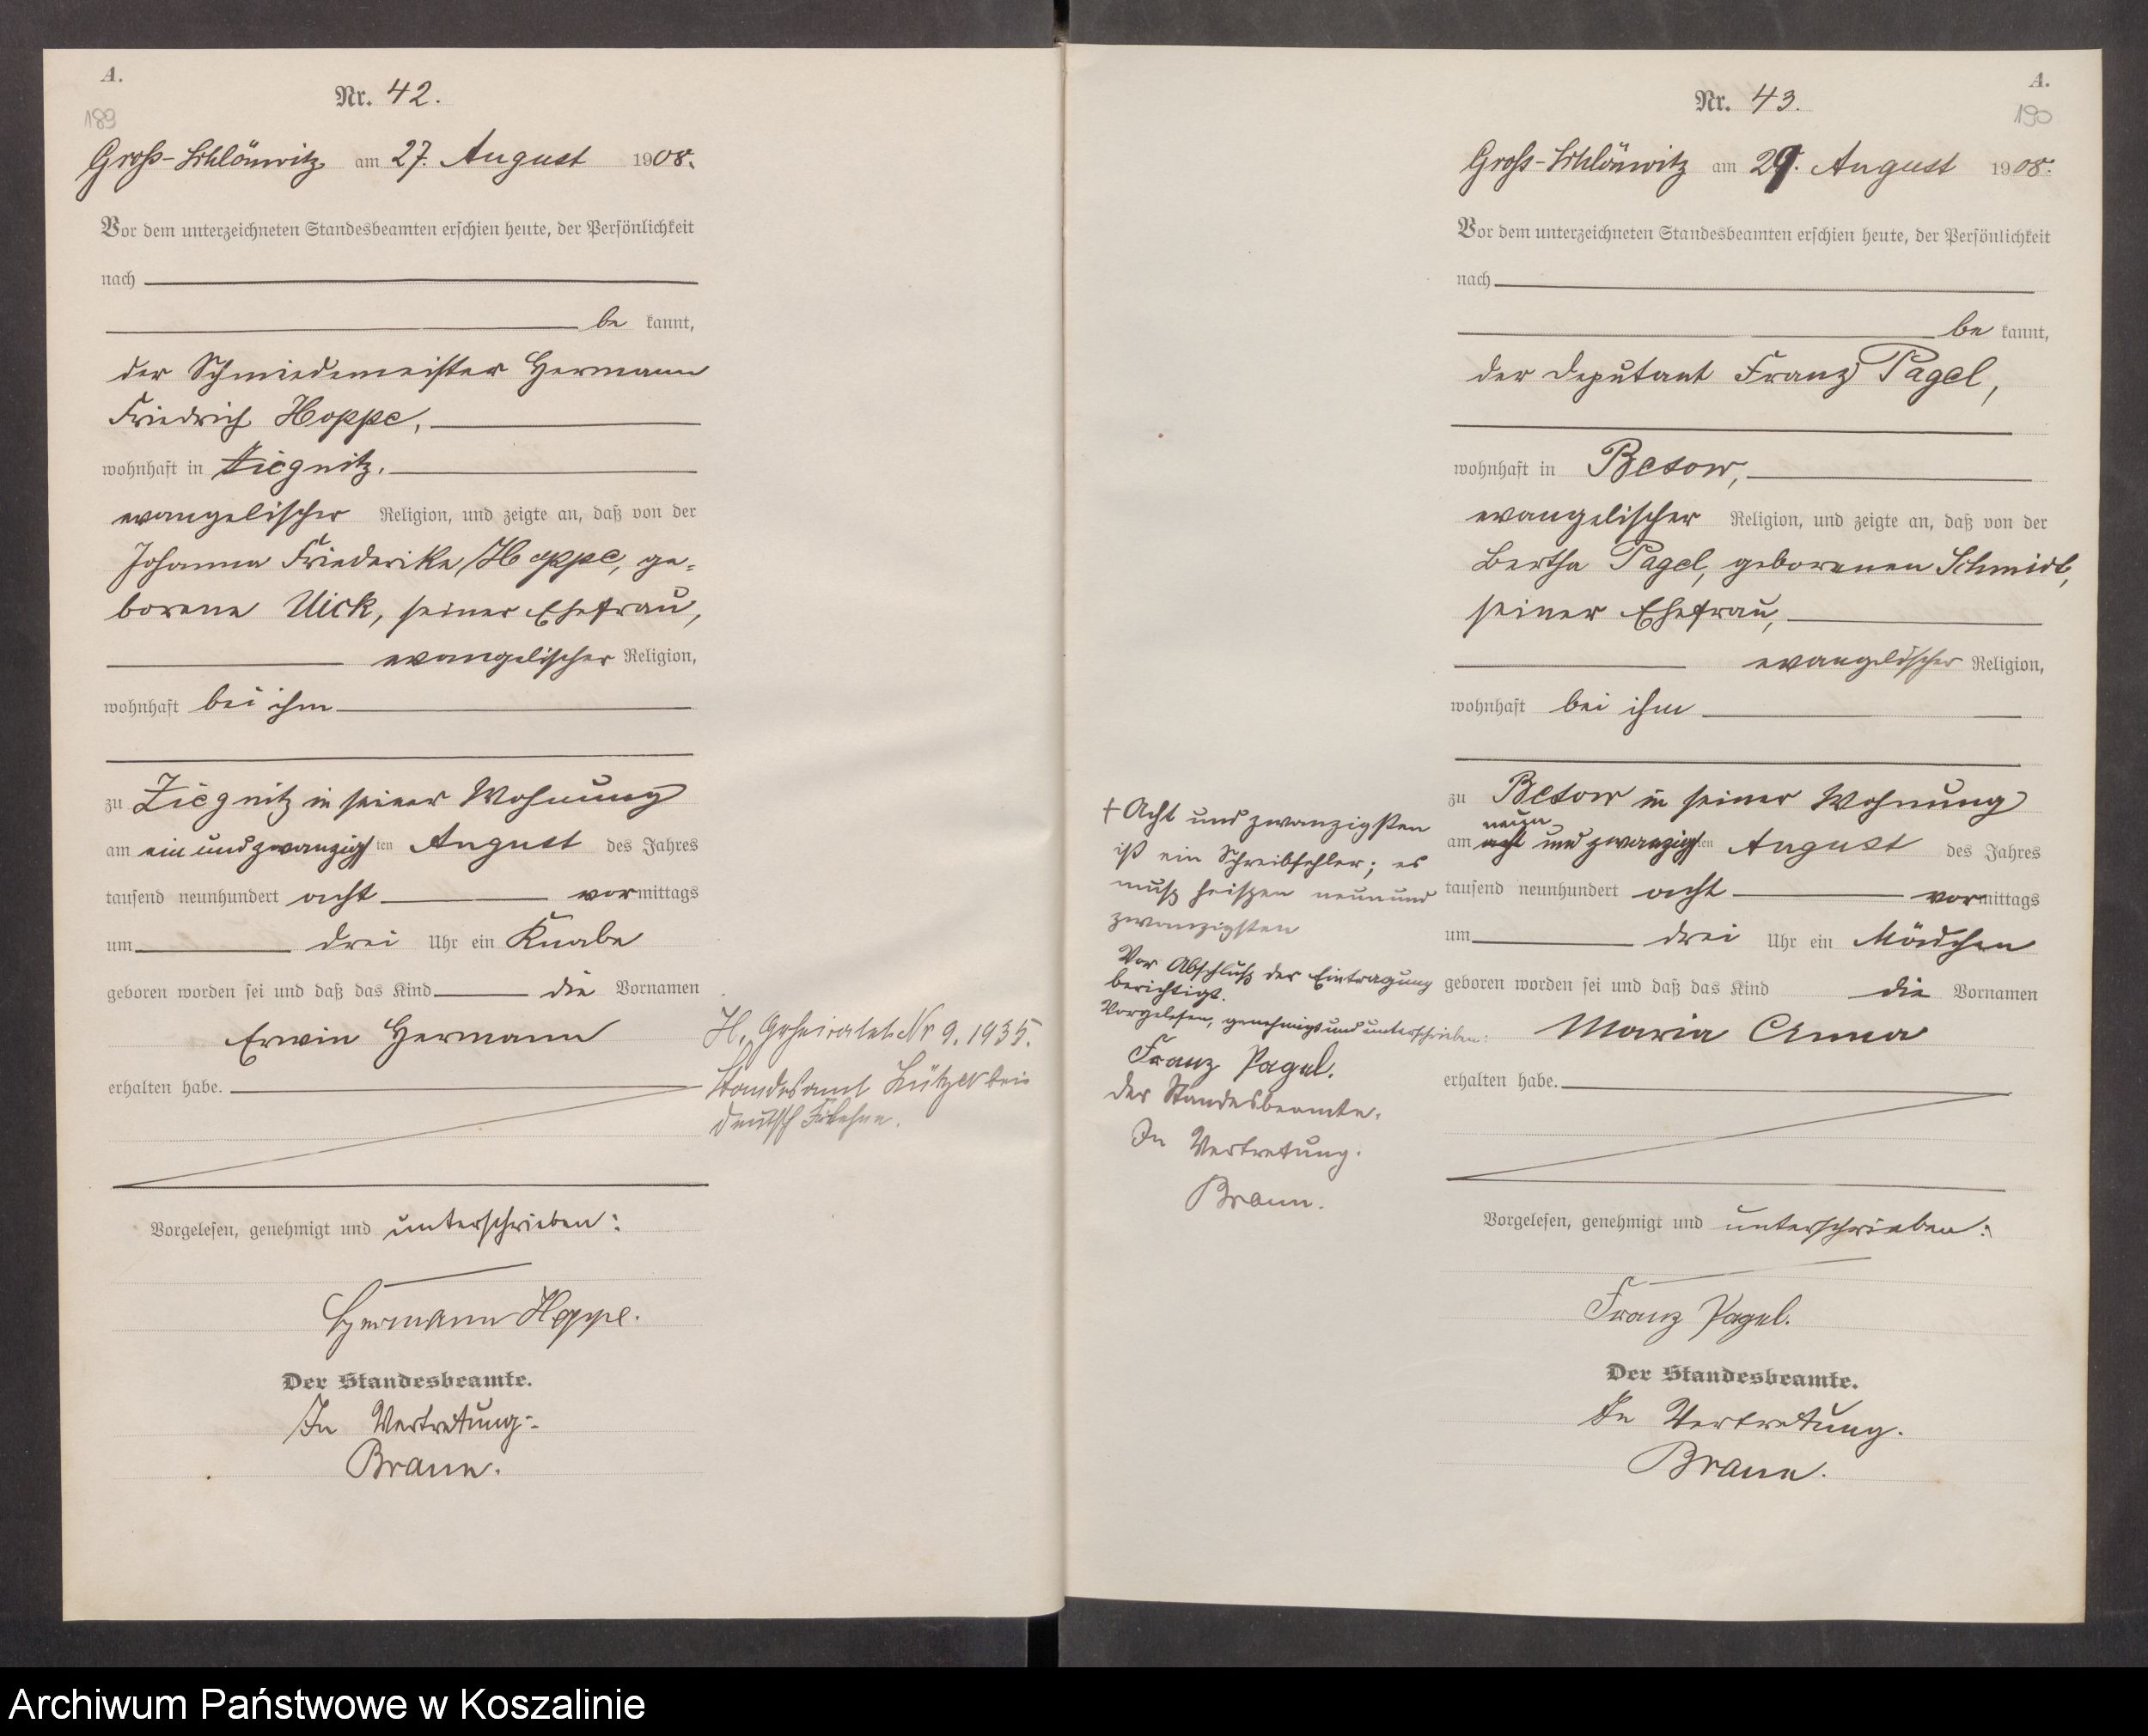 A.
189
Nr. 42.
Groß-Schlönwitz am 27. August 1908.
Vor dem unterzeichneten Standesbeamten erschien heute, der Persönlichkeit
nach
be kannt,
der Schmiedemeister Hermann
Friedrich Hoppe,
wohnhaft in Ziegnitz,
evangelischer Religion, und zeigte an, daß von der
Johanna Friederike Hoppe, ge-
borene Uick, seiner Ehefrau,
evangelischer Religion,
wohnhaft bei ihm
zu Ziegnitz in seiner Wohnung
am ein und zwanzigsten August des Jahres
tausend neunhundert acht vormittags
um drei Uhr ein Knabe
geboren worden sei und daß das Kind die Vornamen
Erwin Hermann
erhalten habe.
H. Geheiratet Nr 9. 1935.
Standesamt
Deutsch
Vorgelesen, genehmigt und unterschrieben:
Hermann Hoppe.
Der Standesbeamte.
In Vertretung:
Braun.
A.
190
Nr. 43.
Groß-Schlönwitz am 29. August 1908.
Vor dem unterzeichneten Standesbeamten erschien heute, der Persönlichkeit
nach
be kannt,
der Deputant Franz Pagel,
wohnhaft in Beßow,
evangelischer Religion, und zeigte an, daß von der
Bertha Pagel, geborenen Schmidt,
seiner Ehefrau,
evangelischer Religion,
wohnhaft bei ihm
zu Beßow in seiner Wohnung
neun
am acht und zwanzigsten August des Jahres
tausend neunhundert acht vormittags
um drei Uhr ein Mädchen
geboren worden sei und daß das Kind die Vornamen
Maria Anna
erhalten habe.
+ Acht und zwanzigsten
ist ein Schreibfehler; es
muß heißen neunund
zwanzigsten
Vor Abschluß der Eintragung
berichtigt.
Vorgelesen, genehmigt und unterschrieben:
Franz Pagel.
Der Standesbeamte.
In Vertretung.
Braun.
Vorgelesen, genehmigt und unterschrieben:
Franz Pagel.
Der Standesbeamte.
In Vertretung.
Braun.
Archiwum Państwowe w Koszalinie